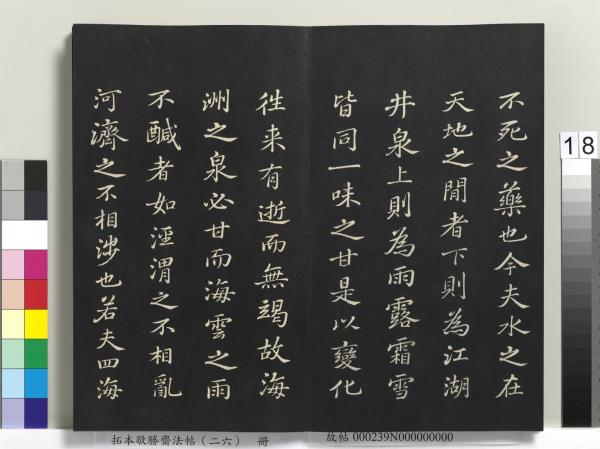 不死之藥也今夫水之在
天地之間者下則為江湖
井泉上則為雨露霜雪
皆同一味之甘是以變化
徃来有逝而無竭故海
洲之泉必甘而海雲之雨
不醎者如涇渭之不相亂
河濟之不相涉也若夫四海
18
拓本敬勝齋法帖(二六) 冊
故帖 000239N000000000